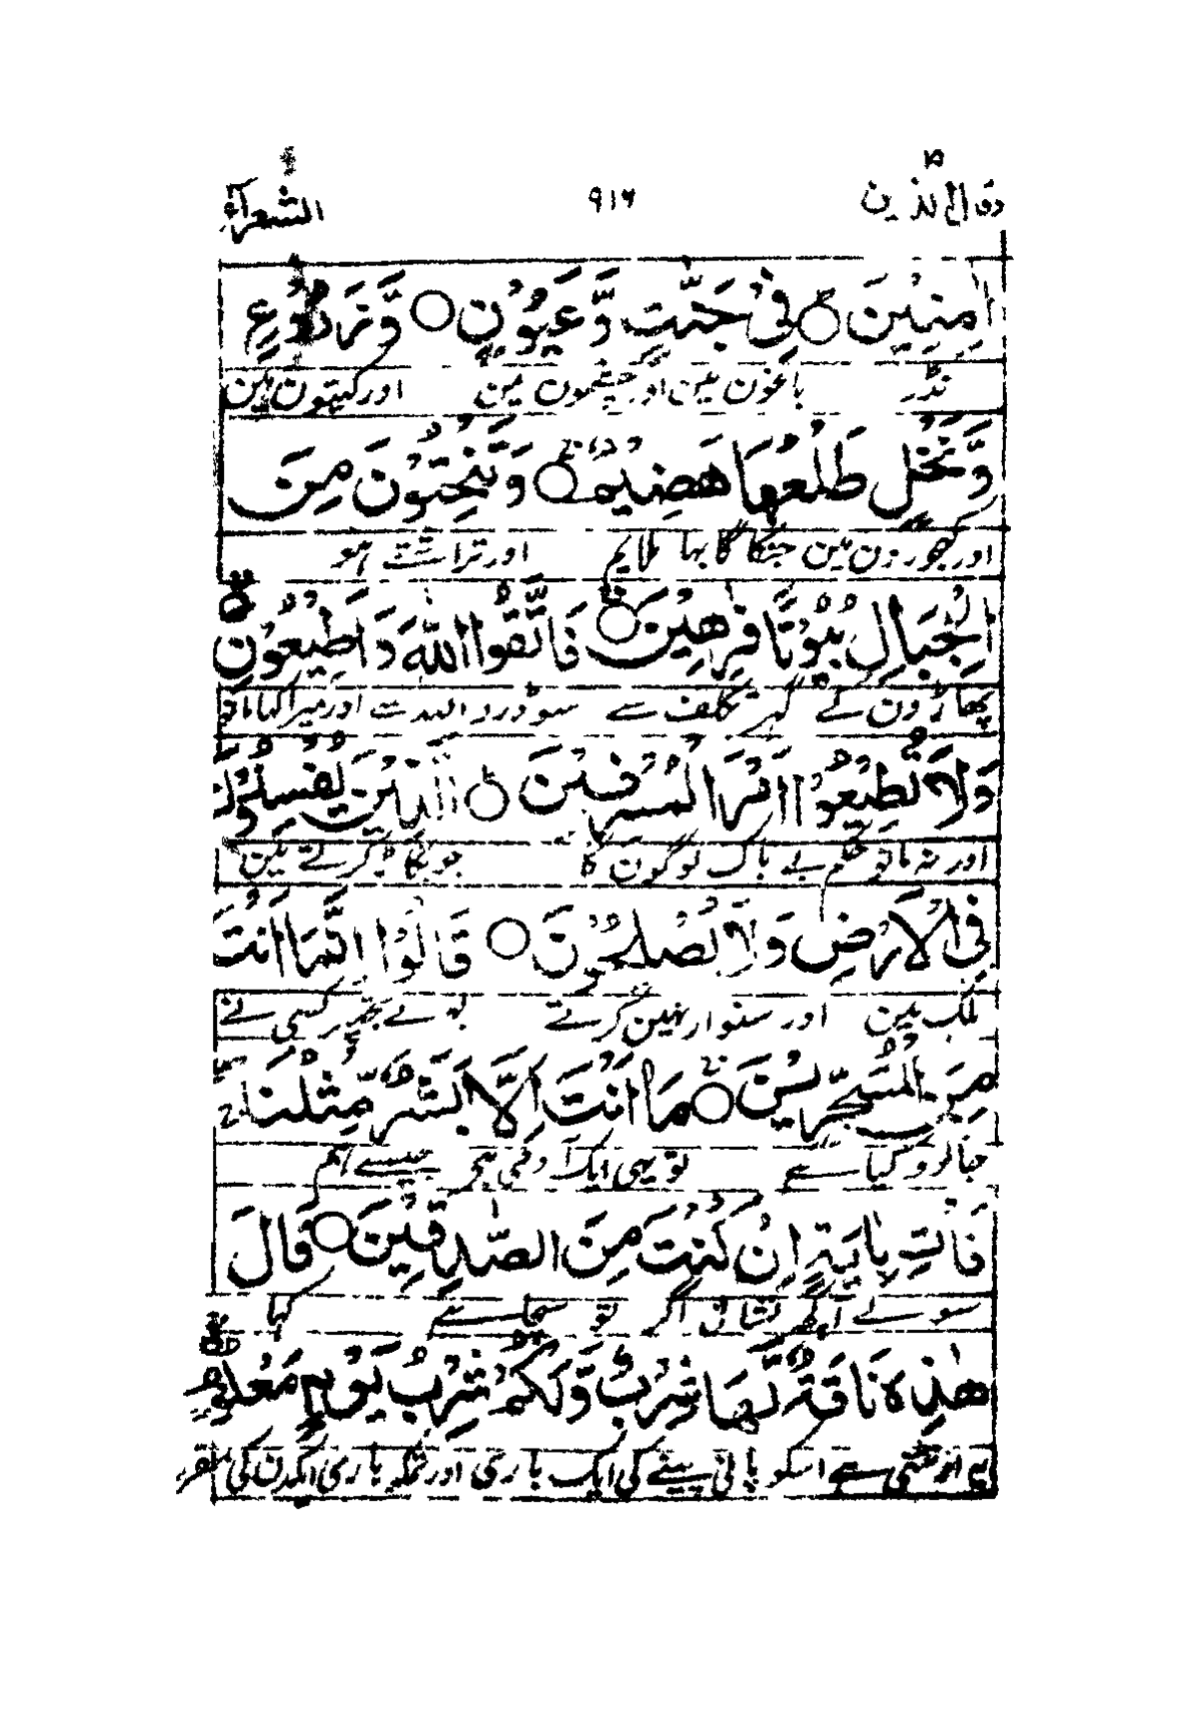 وقال الذین ۹۱۶ الشعرآء
اٰمِنِیْنَ ○ فِیْ جَنّٰتٍ وَّعُیُوْنٍ ○ وَّزُرُوْعٍ
نڈر باغون مین اور چشمون مین اور کھیتون مین
وَّنَخْلٍ طَلْعُهَا هَضِیْمٌ ○ وَتَنْحِتُوْنَ مِنَ
اور کھجورون مین جنکا گابہا ملایم اور تراشتے ہو
الْجِبَالِ بُیُوْتًا فٰرِهِیْنَ ○ فَاتَّقُوا اللّٰهَ وَاَطِیْعُوْنِ ○
پھاڑون کے گہر تکلف سے سو ڈرو اللہ سے اور میرا کہا مانو
وَلَا تُطِیْعُوْۤا اَمْرَ الْمُسْرِفِیْنَ ○ الَّذِیْنَ یُفْسِدُوْنَ
اور نہ مانو حکم بے باک لوگون کا جو بگاڑ کرتے ہین
فِی الْاَرْضِ وَلَا یُصْلِحُوْنَ ○ قَالُوْۤا اِنَّمَاۤ اَنْتَ
ملک مین اور سنوار نہین کرتے بولے تجھپر کسی نے
مِنَ الْمُسَحَّرِیْنَ ○ مَاۤ اَنْتَ اِلَّا بَشَرٌ مِّثْلُنَا
جادو کیا ہے تو یہی ایک آدمی ہے جیسے ہم
فَاْتِ بِاٰیَةٍ اِنْ كُنْتَ مِنَ الصّٰدِقِیْنَ ○ قَالَ
سو لے آ کچھ نشانی اگر تو سچا ہے کہا
هٰذِهٖ نَاقَةٌ لَّهَا شِرْبٌ وَّلَكُمْ شِرْبُ یَوْمٍ مَّعْلُوْمٍ
یہ اونٹنی ہے اسکو پانی پینے کی ایک باری اور تمکو باری ایکدن کی مقرر